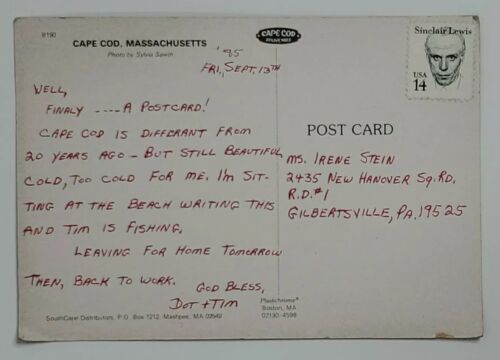 B190
CAPE COD, MASSACHUSETTS
Photo by Sylvia Sawin
CAPE COD
Sinclair Lewis
USA
14
'85
FRI., SEPT. 13TH
WELL,
FINALY ---- A POSTCARD!
CAPE COD IS DIFFERANT FROM
20 YEARS AGO - BUT STILL BEAUTIFUL
COLD, TOO COLD FOR ME. I'M SIT-
TING AT THE BEACH WRITING THIS
AND TIM IS FISHING.
LEAVING FOR HOME TOMORROW
THEN, BACK TO WORK.
GOD BLESS,
DOT + TIM
POST CARD
MS. IRENE STEIN
2435 NEW HANOVER SQ. RD.
R.D. #1
GILBERTSVILLE, PA. 19525
SouthCape Distributors, P.O. Box 1212, Mashpee, MA 02649
Plastichrome®
Boston, MA
02130-4598